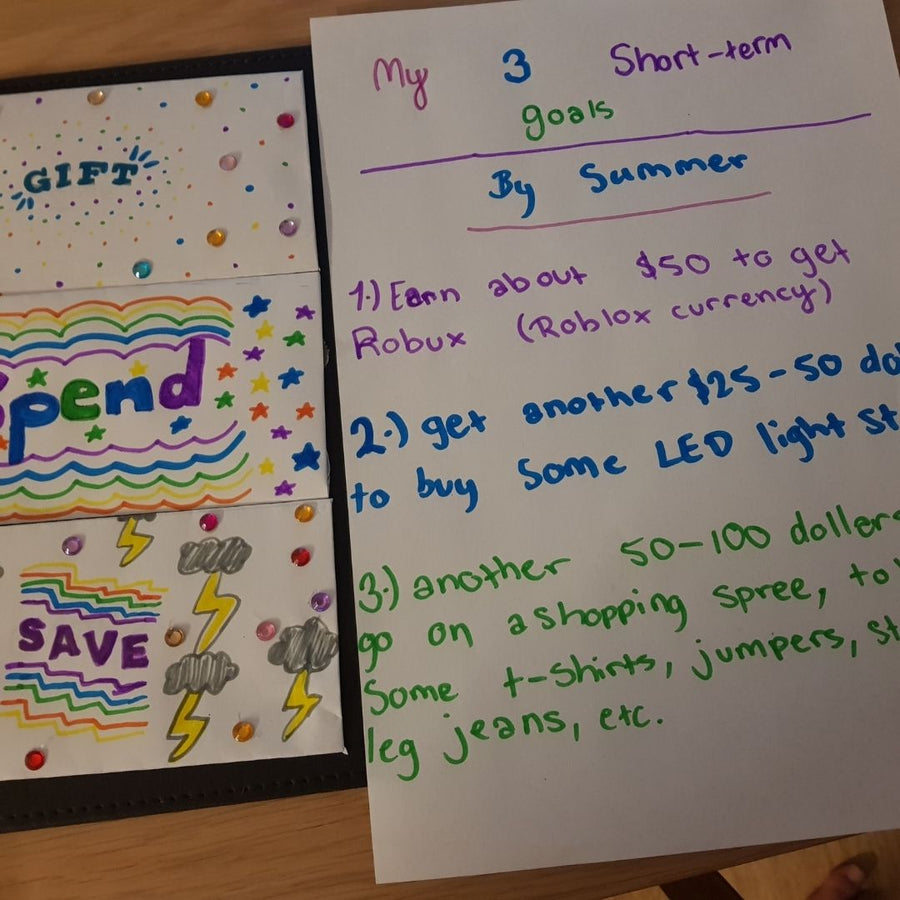 GIFT
Spend
SAVE
My 3 Short-term
goals
By Summer
1.) Earn about $50 to get
Robux (Roblox currency)
2.) get another $25-50
to buy Some LED light
3.) another 50-100 dollers
go on a shopping spree, to
Some t-shirts, jumpers,
leg jeans, etc.